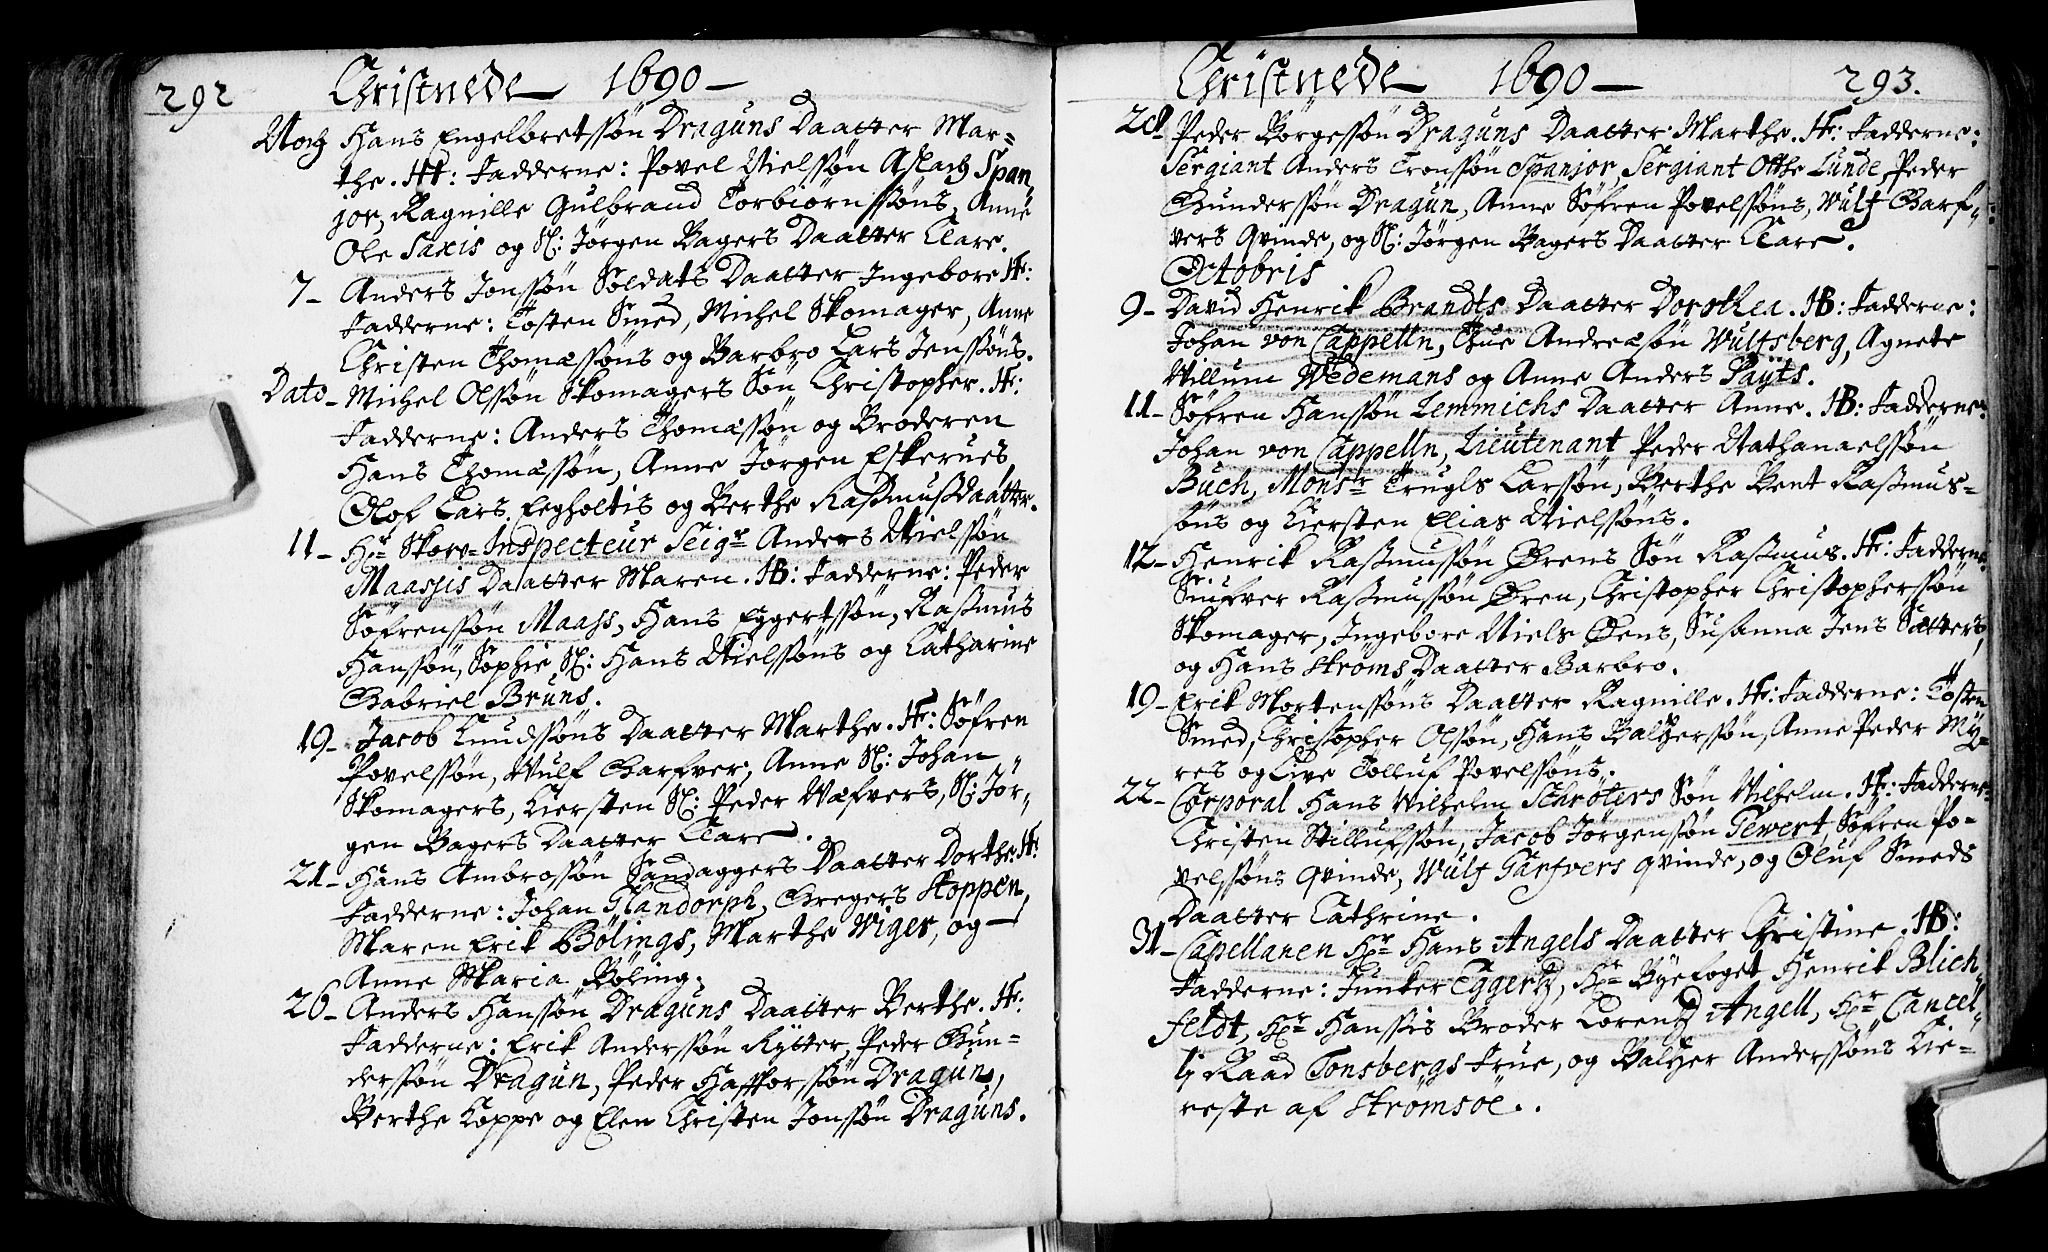 292 Christnede 1690
Noch Hans Engelbretssøn Draguns Daatter Mar=
the. Hf: Fadderne: Povel Nielssøn Aslach Span
jor, Ragnille Gulbrand Torbiørnssøns, Anne
Ole Saxis og Sl: Jørgen Bagers Daatter Clare.
7 - Anders Jonssøn Soldats Daatter Ingebore Hf:
Fadderne: Tosten Smed, Michel Skomager, Anne
Christen Thomæssøns og Barbro Lars Jenssøns.
Dato - Michel Olssøn Skomagers Søn Christopher. Hf:
Fadderne: Anders Thomæssøn og Broderen
Hans Thomæssøn, Anne Jørgen Eskerues
Olof Lars Eegholtis og Berthe Rasmusdaatter.
11 - Hr Skov=Inspecteur Seigr Anders Nielssøn
Maassis Daatter Maren. HB: Fadderne: Peder
Søfrenssøn Maass, Hans Eggertssøn, Rasmus
Hanssøn, Sophie Sl: Hans Nielssøns og Catharine
Gabriel Bruns.
19 - Jacob Knudssøns Daatter Marthe. Hf: Søfren
Povelssøn, Wulf Garfver, Anne Sl: Johan
Skomagers, Kiersten Sl: Peder Wæfvers, Sl: Jør=
gen Bagers Daatter Clare.
21 - Hans Ambrossøn Sandaggers Daatter Dorthe. Hf:
Fadderne: Johan Glandorph, Gregers Stoppen,
Maren Erik Bølings, Marthe Wiger, og
Anne Maria Bøling.
26 - Anders Hanssøn Draguns Daatter Berthe. Hf:
Fadderne: Erik Anderssøn Rytter, Peder Gun=
derssøn Dragun, Peder Hafforssøn Dragun,
Berthe Koppe og Elen Christen Jonssøn Draguns.
Christnede 1690 293.
28 Peder Børgessøn Draguns Daatter Marthe. Hf: Fadderne:
Sergiant Anders Tronssøn Spanjor, Sergiant Otthe Lunde, Peder
Gunderssøn Dragun, Anne Søfren Povelssøns, Wulf Garf=
vers Qvinde, og Sl: Jørgen Bagers Daatter Clare.
Octobris
9 - David Henrik Brandts Daatter Dorothea. HB: Fadderne:
Johan von Cappelln, Thue Andreæsøn Wultsberg, Agnete
Willum Wedemans og Anne Anders Payts.
11 - Søfren Hanssøn Lemmichs Daatter Anne. HB: Fadderne:
Johan von Cappelln, Lieutenant Peder Nathanaelssøn
Buch, Monsr Trugls Larssøn, Berthe Bent Rasmus=
søns og Kiersten Elias Nielssøns.
12 - Henrik Rasmussøn Ørens Søn Rasmus. Hf: Fadderne:
Siufver Rasmussøn Øren, Christopher Christopherssøn
Skomager, Ingebore Niels Øens, Susanna Jens Sætters,
og Hans Strøms Daatter Barbro.
19 - Erik Mortenssøns Daatter Ragnille. Hf: Fadderne: Tosten
Smed, Christopher Olssøn, Hans Baltzerssøn, Anne Peder My=
res og Live Tolluf Povelssøns.
22 - Corporal Hans Wilhelm Schrøters Søn Wilhelm. Hf: Fadderne:
Christen Stillufssøn, Jacob Jørgenssøn Gewert, Søfren Po=
velssøns Qvinde, Wulf Garfvers qvinde, og Oluf Smeds
Daatter Cathrine.
31 - Capellanen Hr Hans Angels Daatter Christine. HB:
Fadderne: Junker Eggertz, Hr Byefoget Henrik Blich=
feldt, Hr Hanssis Broder Lorentz Angell, Hr Cancel=
ly Raad Tonsbergs Frue, og Baltzer Anderssøns Kie=
reste af Strømsøe.